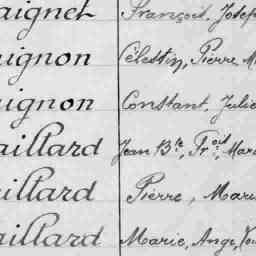 aignet François, Josep
uignon Célestin, Pierre, M
uignon Constant, Julie
aillard Jean Bte, Frois, Mari
aillard Pierre, Mari
aillard Marie, Ange,